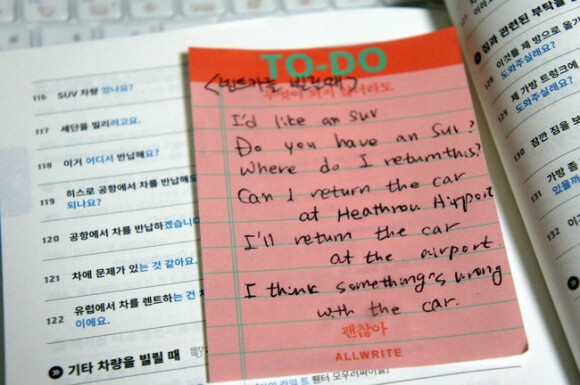 TO-DO
<렌트카를 빌릴때>
무엇이 되지 않더라도
I'd like an suv.
Do you have an suv?
Where do I return this?
Can I return the car
at Heathrow Airport
I'll return the car
at the airport.
I think something's wrong
with the car.
괜찮아
ALLWRITE
116 SUV 차량 있나요?
117 세단을 빌리려고요.
118 이거 어디서 반납해요?
119 히스로 공항에서 차를 반납해도
되나요?
120 공항에서 차를 반납하겠습니
121 차에 문제가 있는 것 같아요.
122 유럽에서 차를 렌트하는 건
이에요.
기타 차량을 빌릴 때
짐과 관련된 부탁을
이것을 제 방으로 옮
도와주실래요?
129 제 가방 트렁크에
도와주실래요?
130 잠깐 짐을 보
131 가방 좀
있을까
132 이